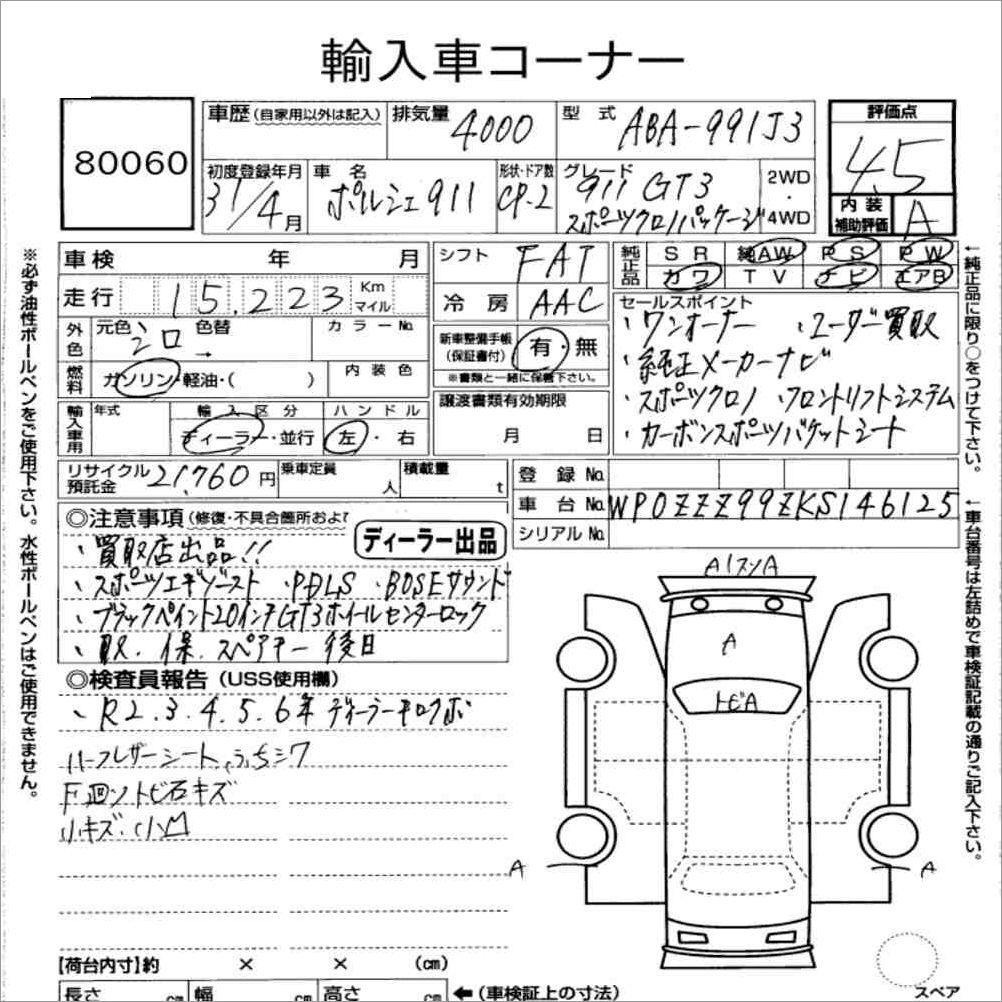 輸入車コーナー
80060
車歴 (自家用以外は記入) 排気量 4000 型式 ABA-991J3 評価点
4.5
初度登録年月 31/4月 車名 ポルシェ911 形状・ドア数 CP-2 グレード 911 GT3 スポーツクロノパッケージ 2WD 4WD
内装補助評価 A
車検 年 月 シフト FAT 純正品 SR 純AW PS PW
カワ TV ナビ エアB
走行 15,223 Km マイル 冷房 AAC
セールスポイント
・ワンオーナー ・ユーザー買取
・純正メーカーナビ
・スポーツクロノ フロントリフトシステム
・カーボンスポーツバケットシート
外色 元色 シロ 色替 → カラーNo. 新車整備手帳(保証書付) 有・無
※書類と一緒に保管下さい。
燃料 ガソリン・軽油・( ) 内装色
輸入車用 年式 輸入区分 ハンドル 譲渡書類有効期限
ディーラー・並行 左・右 月 日
リサイクル預託金 21,760円 乗車定員 人 積載量 t 登録No.
車台No. WP0ZZZ99ZKS146125
シリアルNo.
◎注意事項 (修復・不具合箇所およ
ディーラー出品
、買取店出品!!
、スポーツエギゾースト ・PDLS ・BOSEサウンド
・ブラックペイント20インチGT3ホイールセンターロック
・取・保・スペアキー後日
◎検査員報告 (USS使用欄)
、R2.3.4.5.6年ディーラーキロクボ
ハーフレザーシート、ふちシワ
F廻ソトビ石キズ
小キズ・小凹
A1スソA
A
トビA
A A
スペア
【荷台内寸】約 × × (cm)
長さ cm 幅 cm 高さ cm ←(車検証上の寸法)
※必ず油性ボールペンをご使用下さい。水性ボールペンはご使用できません。
←純正品に限り○をつけて下さい。
←車台番号は左詰めで車検証記載の通りご記入下さい。